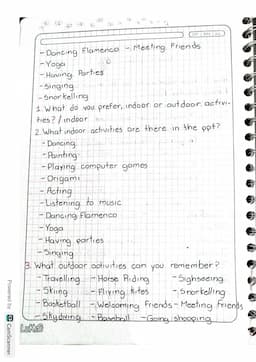 - Dancing Flamenco - Meeting Friends
- Yoga
- Having Parties
- Singing
- Snorkelling
1. What do you prefer, indoor or outdoor activi-
ties? / indoor
2. What indoor activities are there in the ppt?
- Dancing
- Painting
- Playing computer games
- Origami
- Acting
- Listening to music
- Dancing Flamenco
- Yoga
- Having parties
- Singing
3. What outdoor activities can you remember?
- Travelling - Horse Riding - Sighseeing
- Skiing - Flriying kites - Snorkelling
- Basketball - Welcoming Friends - Meeting friends
- Skydiving - Baseball - Going shopping
Powered by CamScanner